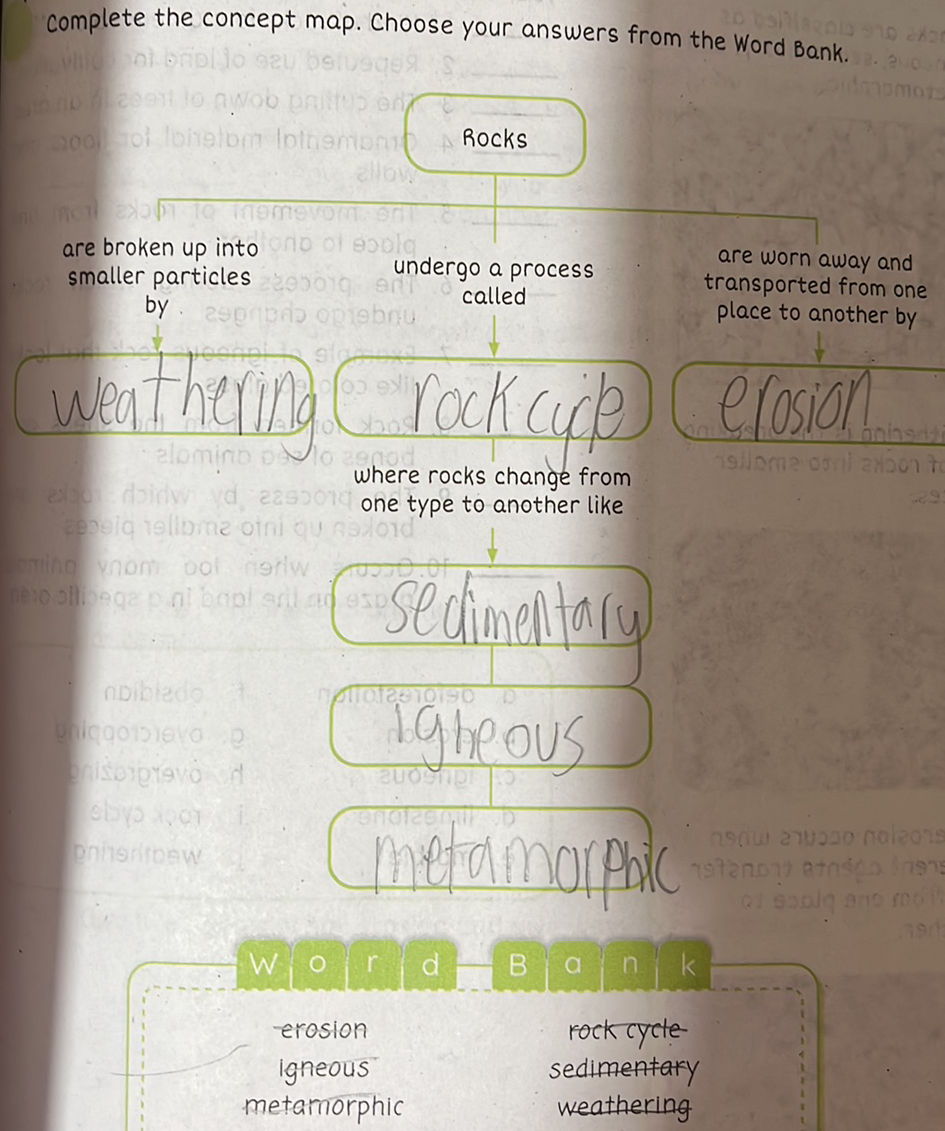 Complete the concept map. Choose your answers from the Word Bank.
Rocks
are broken up into
smaller particles
by
weathering
undergo a process
called
rock cycle
are worn away and
transported from one
place to another by
erosion
where rocks change from
one type to another like
sedimentary
igneous
metamorphic
Word Bank
erosion
igneous
metamorphic
rock cycle
sedimentary
weathering